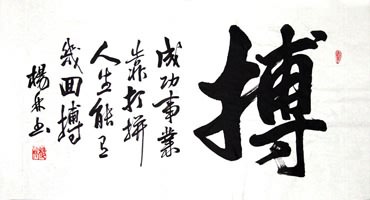 搏
成功事業
靠打拼
人生能有
幾回搏
楊